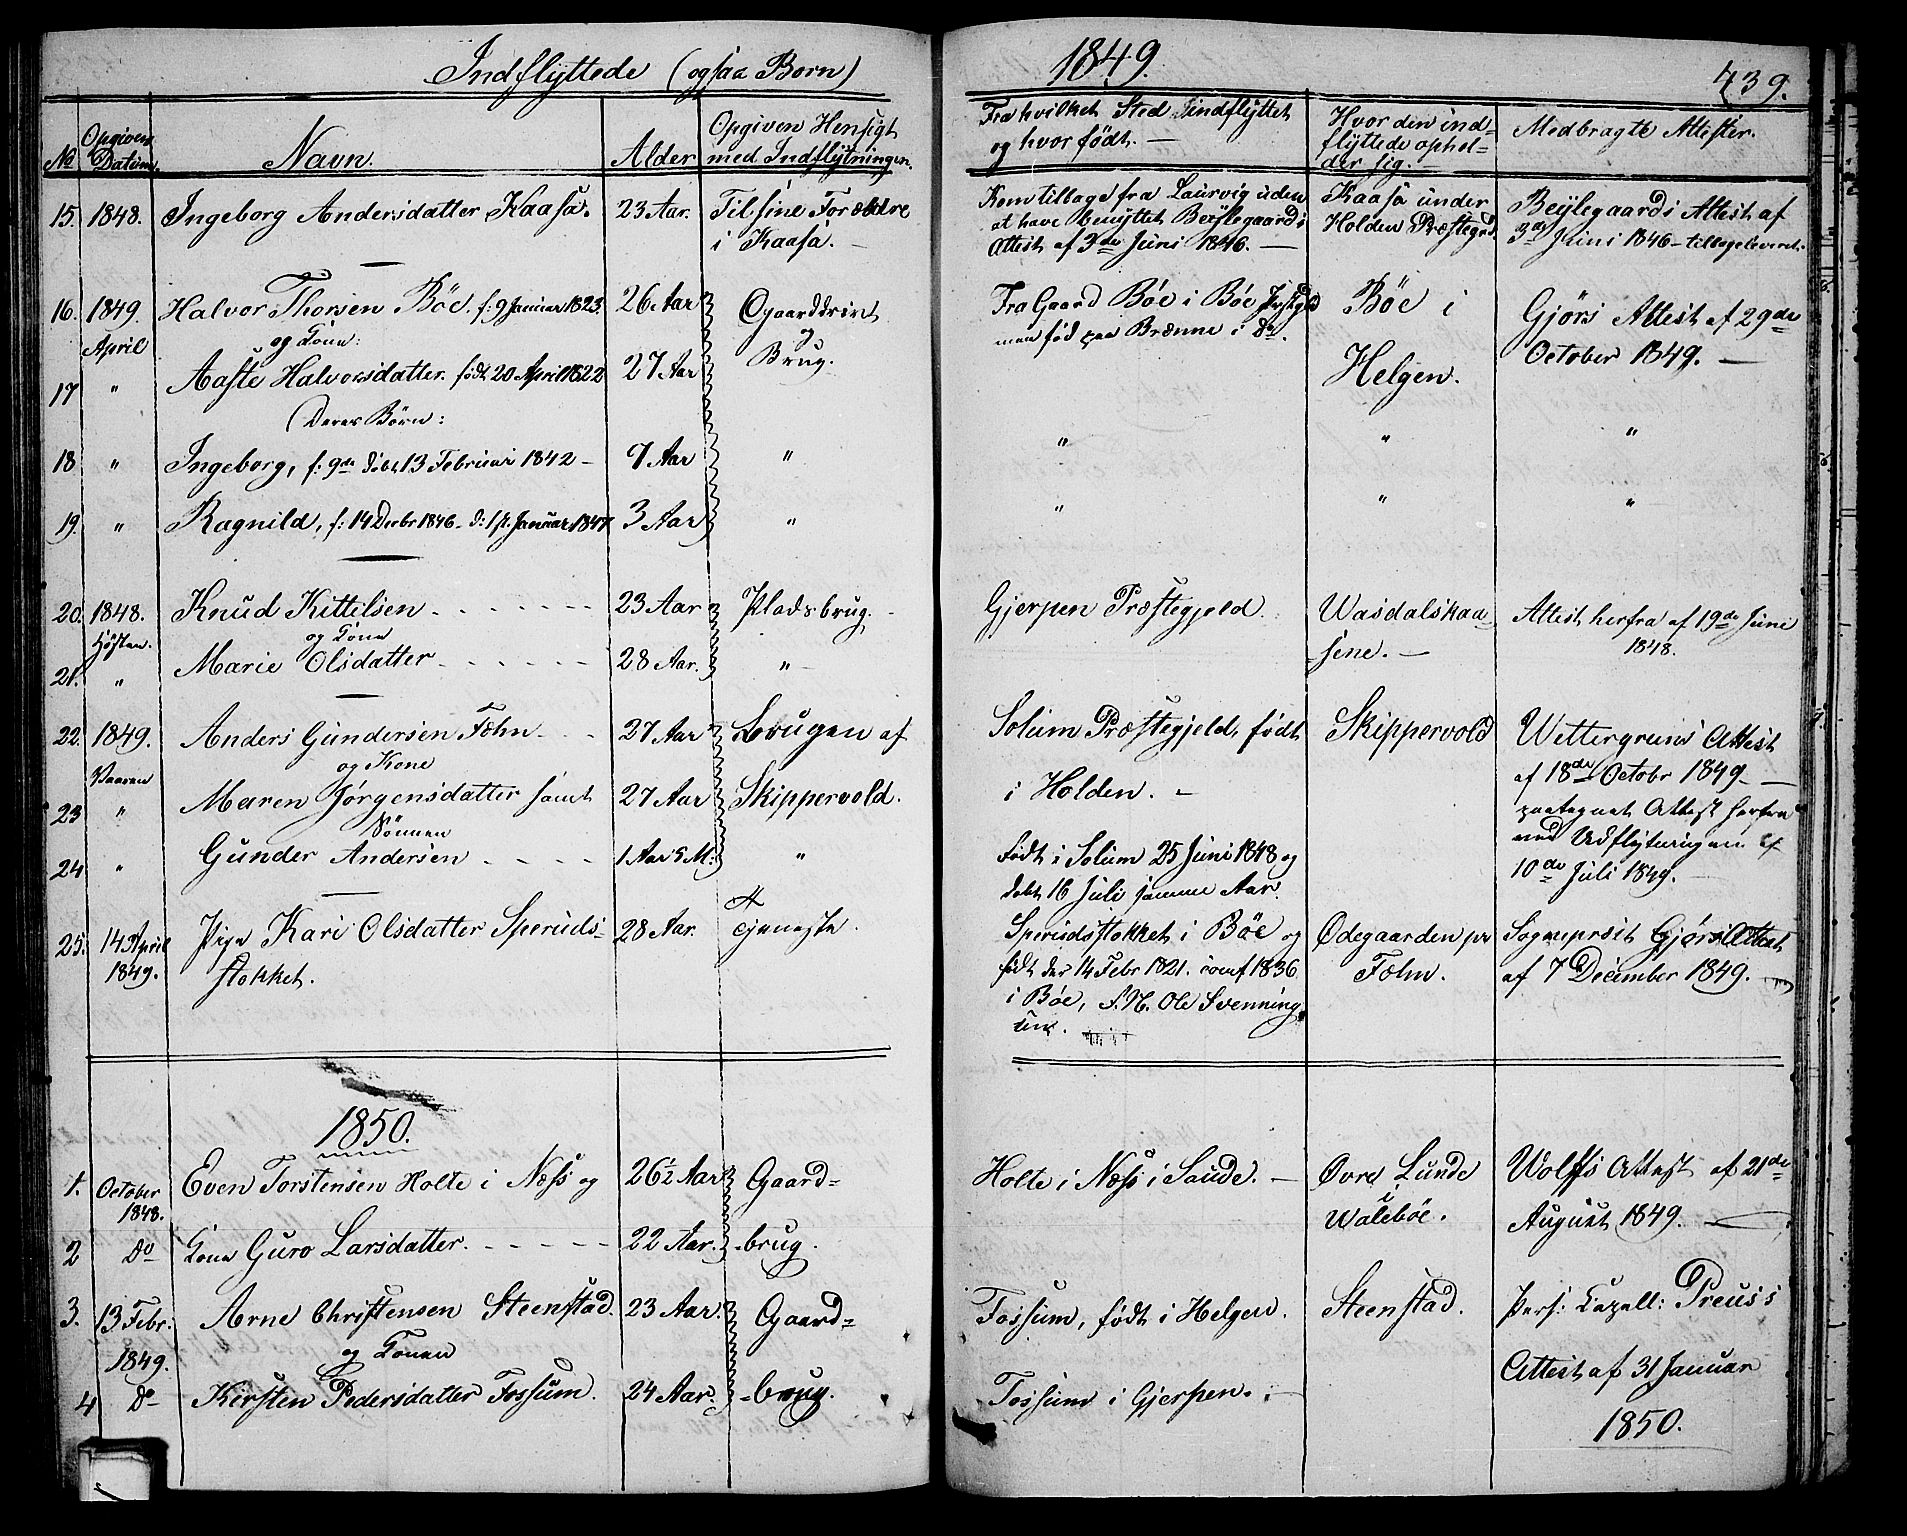 Indflyttede (ogsaa Børn)
1849.
439.
No
Opgiven Datum.
Navn.
Alder
Opgiven Hensigt med Indflytningen.
Fra hvilket Sted Indflyttet og hvor født. —
Hvor den indflyttede opholder sig. —
Medbragte Attester.
15. 1848. Ingeborg Andersdatter Kaasa. 23 Aar. Til sine Forældre
i Kaasa. —
Kom tilbage fra Laurvig uden
at have benyttet Beylegaards
Attest af 3de Juni 1846. —
Kaasa under
Holden Præstegd.
Beylegaards Attest af
3de Juni 1846 – tilbageleveret.
16. 1849. Halvor Thorsen Böe. f: 9 Januar 1823. 26 Aar Gaarddrivt
April og Kone: og
17 " Aaste Halvorsdatter. født 20 April 1822 27 Aar Brug.
(Deres Børn:
Fra Gaard Böe i Böe Præstgd
men fød paa Brænne i Do.
Böe i
Helgen.
Gjörs Attest af 29de
October 1849. —
18 " Ingeborg, f: 9de döbt 13 Februar 1842 – 7 Aar "
" " "
19. " Ragnild, f: 14 Decbr 1846 – d: 1st Januar 1847. 3 Aar "
" " "
20. 1848. Knud Kittilsen 23 Aar Pladsbrug. –
Høsten. og Kone
21. " Marie Olsdatter 28 Aar. " –
Gjerpen Præstegjeld.
Wasdalskaasene. —
Attest herfra af 19de June
1848.
22. 1849. Anders Gundersen Fæhn 27 Aar Brugen af
Vaaren og Kone
23 " Maren Jørgensdatter samt 27 Aar Skippervold.
Sönnen
24 " Gunder Andersen 1 Aar 5 M: "
Solum Præstegjeld, født
i Holden. –
Født i Solum 25 Juni 1848 og
døbt 16 Juli samme Aar.
Skippervold
Wettergreens Attest
af 18de Octobr 1849 —
paategnet Attest herfra
ved Udflytningen af
10de Juli 1849. —
25. 14 April Pige Kari Olsdatter Speruds- 28 Aar. At
1849. stokket. tjeneste.
Sperudsstokket i Böe og
født der 14 Febr 1821. conf 1836
i Böe, Ole Svenning
sen.
Ødegaarden pr
Fæhn.
Sogneprest Gjörs Attest
af 7 December 1849.
1850.
1. October Even Torstensen Holte i Næss og 26½ Aar Gaard=
1848.
2 Do Kone Guro Larsdatter. 22 Aar. -brug.
Holte i Næss i Saude. —
Øvre Lunde
i
Walebøe.
Wolffs Attest af 21de
August 1849. —
3. 13 Febr: Arne Christensen Steenstad. 23 Aar. Gaard=
1849. og Konen
4 Do Kirsten Pedersdatter Fossum. 24 Aar. -brug.
Fossum, født i Helgen.
Fossum i Gjerpen. –
Steenstad.
Pers: Capell: Preuss
Attest af 31 Januar
1850.